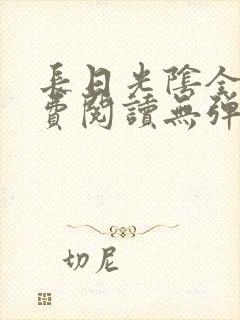 長日光陰全
費閱讀無彈
切尼